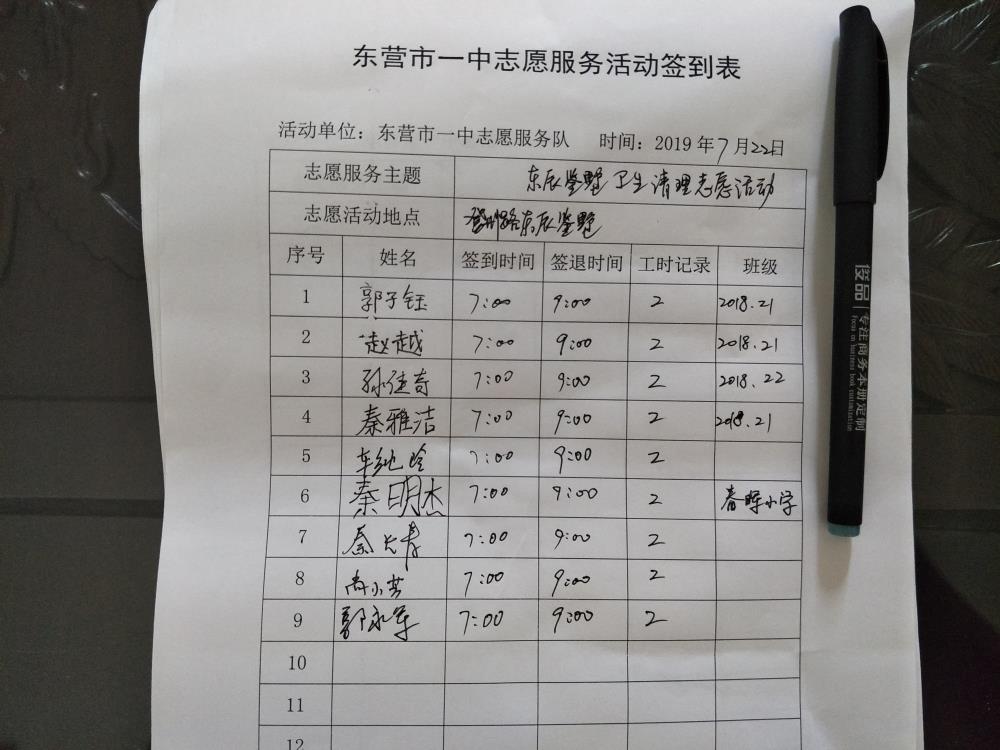 东营市一中志愿服务活动签到表
活动单位：东营市一中志愿服务队 时间：2019年7月22日
志愿服务主题 东辰鉴墅卫生清理志愿活动
志愿活动地点 登州路东辰鉴墅
序号 姓名 签到时间 签退时间 工时记录 班级
1 郭子钰 7:00 9:00 2 2018.21
2 赵越 7:00 9:00 2 2018.21
3 孙佳奇 7:00 9:00 2 2018.22
4 秦雅洁 7:00 9:00 2 2018.21
5 7:00 9:00 2
6 秦明杰 7:00 9:00 2 春晖小学
7 秦长青 7:00 9:00 2
8 尚小芸 7:00 9:00 2
9 郭永军 7:00 9:00 2
10
11
12
俊品 专注商务本册定制
Focus on business book customization